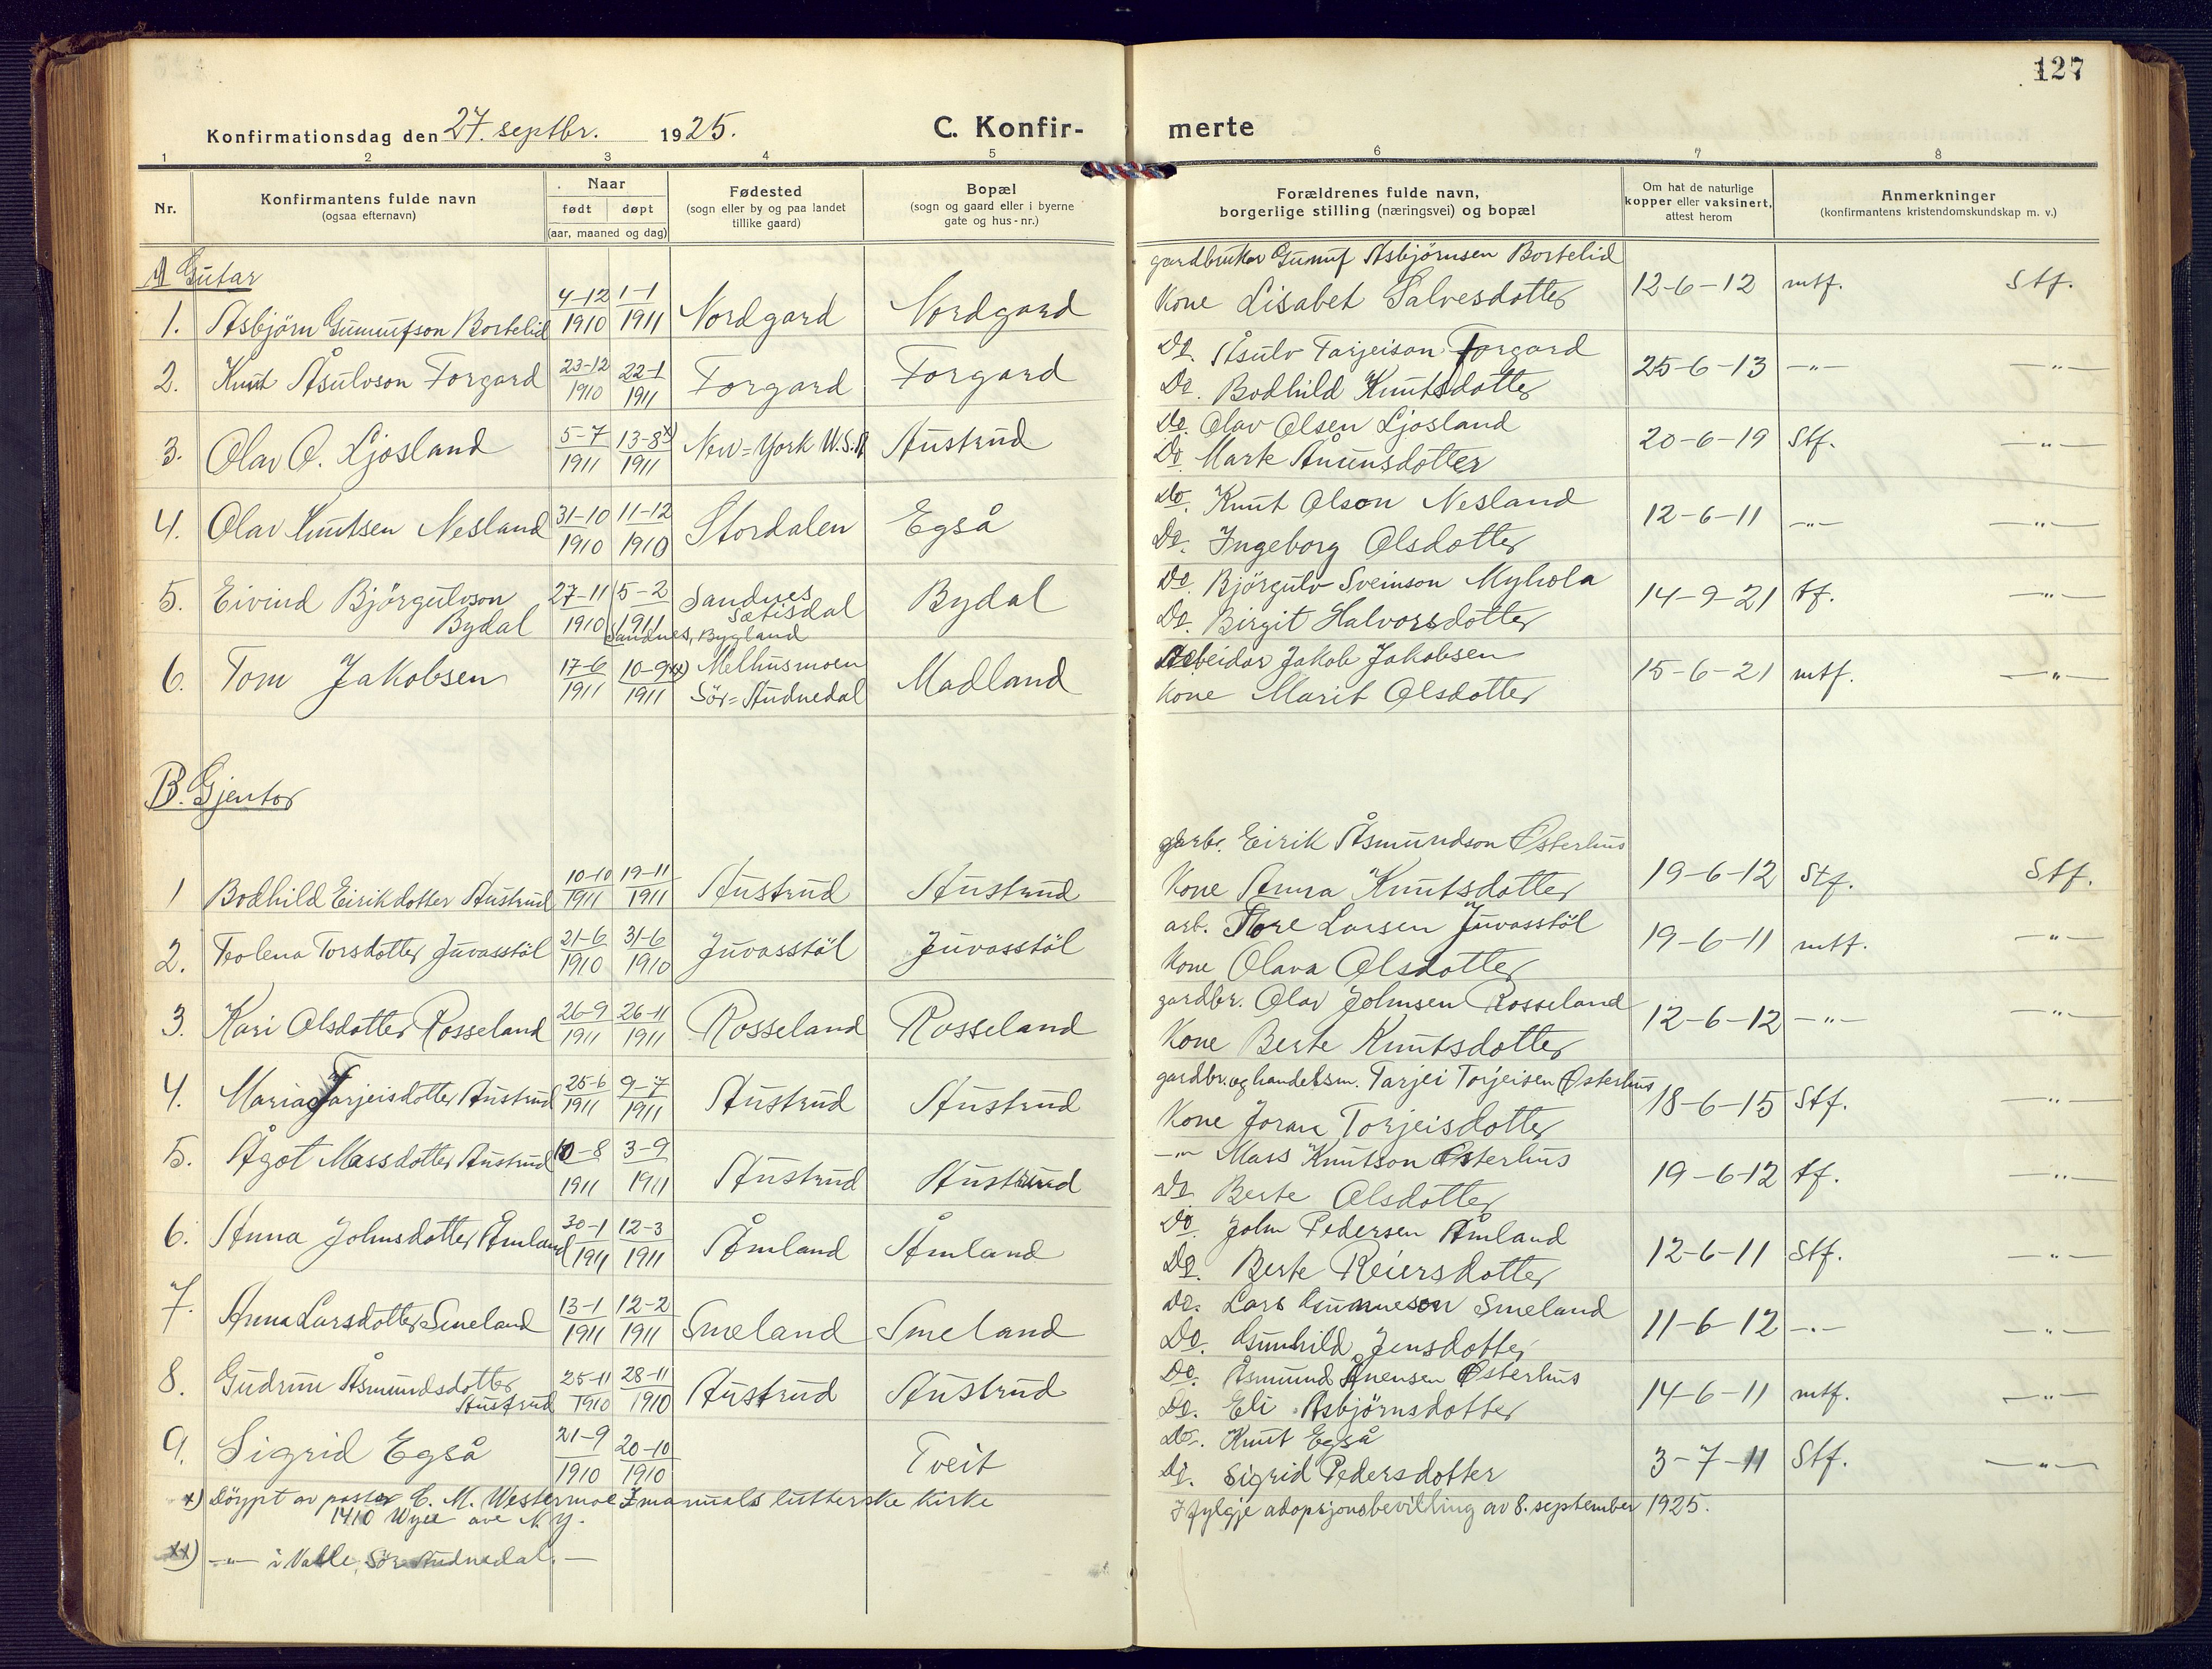 127
Konfirmationsdag den 27. septbr. 1925.
C. Konfir- merte
1 2 3 4 5 6 7 8
Nr.
Konfirmantens fulde navn
(ogsaa efternavn)
Naar
født døpt
(aar, maaned og dag)
Fødested
(sogn eller by og paa landet
tillike gaard)
Bopæl
(sogn og gaard eller i byerne
gate og hus-nr.)
Forældrenes fulde navn,
borgerlige stilling (næringsvei) og bopæl
Om hat de naturlige
kopper eller vaksinert,
attest herom
Anmerkninger
(konfirmantens kristendomskundskap m. v.)
A) Gutar
gardbruker Gunuf Asbjörnsen Bortelid
1. Asbjörn Gunnufson Bortelid 4-12 1910 1-1 1911 Nordgard Nordgard Kone Lisabet Salvesdotter 12-6-12 mtf. Stf.
Do. Åsulv Tarjeison Forgard
2. Knut Åsulvson Forgard 23-12 1910 22-1 1911 Forgard Forgard Do. Bodhild Knutsdotter 25-6-13 -"- -"-
Do. Olav Olsen Ljosland
3. Olav O. Ljosland 5-7 1911 13-8 x) 1911 New=York U.S.A Austrud Do. Marte Ånunsdotter 20-6-19 Stf. -"-
Do. Knut Olson Nesland
4. Olav Knutsen Nesland 31-10 1910 11-12 1910 Stordalen Egså Do. Ingeborg Olsdotter 12-6-11 -"- -"-
Do. Björgulv Sveinson Myhola
5. Eivind Björgulvson 27-11 1910 5-2 1911 Sandnes Sætisdal Bydal Do. Birgit Halvorsdotter 14-9-21 tf. -"-
Bydal Sandnes, Bygland
Arbeidar Jakob Jakobsen
6. Tom Jakobsen 17-6 1911 10-9 xx) 1911 Melhusmoen Sör=Audnedal Madland Kone Marit Olsdotter 15-6-21 mtf. -"-
B. Gjentor
garbr. Eirik Åsmundson Østerhus
1 Bodhild Eirikdotter Austrud 10-10 1911 19-11 1911 Austrud Austrud Kone Anna Knutsdotter 19-6-12 Stf. Stf.
arb. Tore Larsen Juvasstöl
2. Teolena Torsdotter Juvasstöl 21-6 1910 31-6 1910 Juvasstöl Juvasstöl Kone Olava Olsdotter 19-6-11 mtf. -"-
gardbr. Olav Johnsen Rosseland
3. Kari Olsdotter Rosseland 26-9 1911 26-11 1911 Rosseland Rosseland Kone Berte Knutsdotter 12-6-12 -"- -"-
gardbr. og handelsm. Tarjei Torjeisen Østerhus
4. Maria Tarjeisdotter Austrud 25-6 1911 9-7 1911 Austrud Austrud Kone Joran Torjeisdotter 18-6-15 Stf. -"-
-"- Mass Knutson Østerhus
5. Ågot Massdotter Austrud 10-8 1911 3-9 1911 Austrud Austrud Do. Berte Olsdotter 19-6-12 tf. -"-
Do. John Pedersen Åmland
6. Anna Johnsdotter Åmland 30-1 1911 12-3 1911 Åmland Åmland Do. Berte Reiersdotter 12-6-11 Stf. -"-
Do. Lars Gunneson Smeland
7. Anna Larsdotter Smeland 13-1 1911 12-2 1911 Smeland Smeland Do. Gunhild Jensdotter 11-6-12 -"- -"-
Do. Åsmund Ånensen Østerhus
8. Gudrun Åsmundsdotter 25-11 1910 28-11 1910 Austrud Austrud Do. Eli Asbjörnsdotter 14-6-11 mtf. -"-
Austrud
Do. Knut Egså
9. Sigrid Egså 21-9 1910 20-10 1910 Tveit Do. Sigrid Pedersdotter 3-7-11 Stf. -"-
x) Döypt av pastor C. M. Westermoe Imanuals lutterske kirke
1410 ave N.Y.
I fylgje adopsjonsbevilling av 8. september 1925.
xx) -"- i Valle, Sör-Audnedal.-